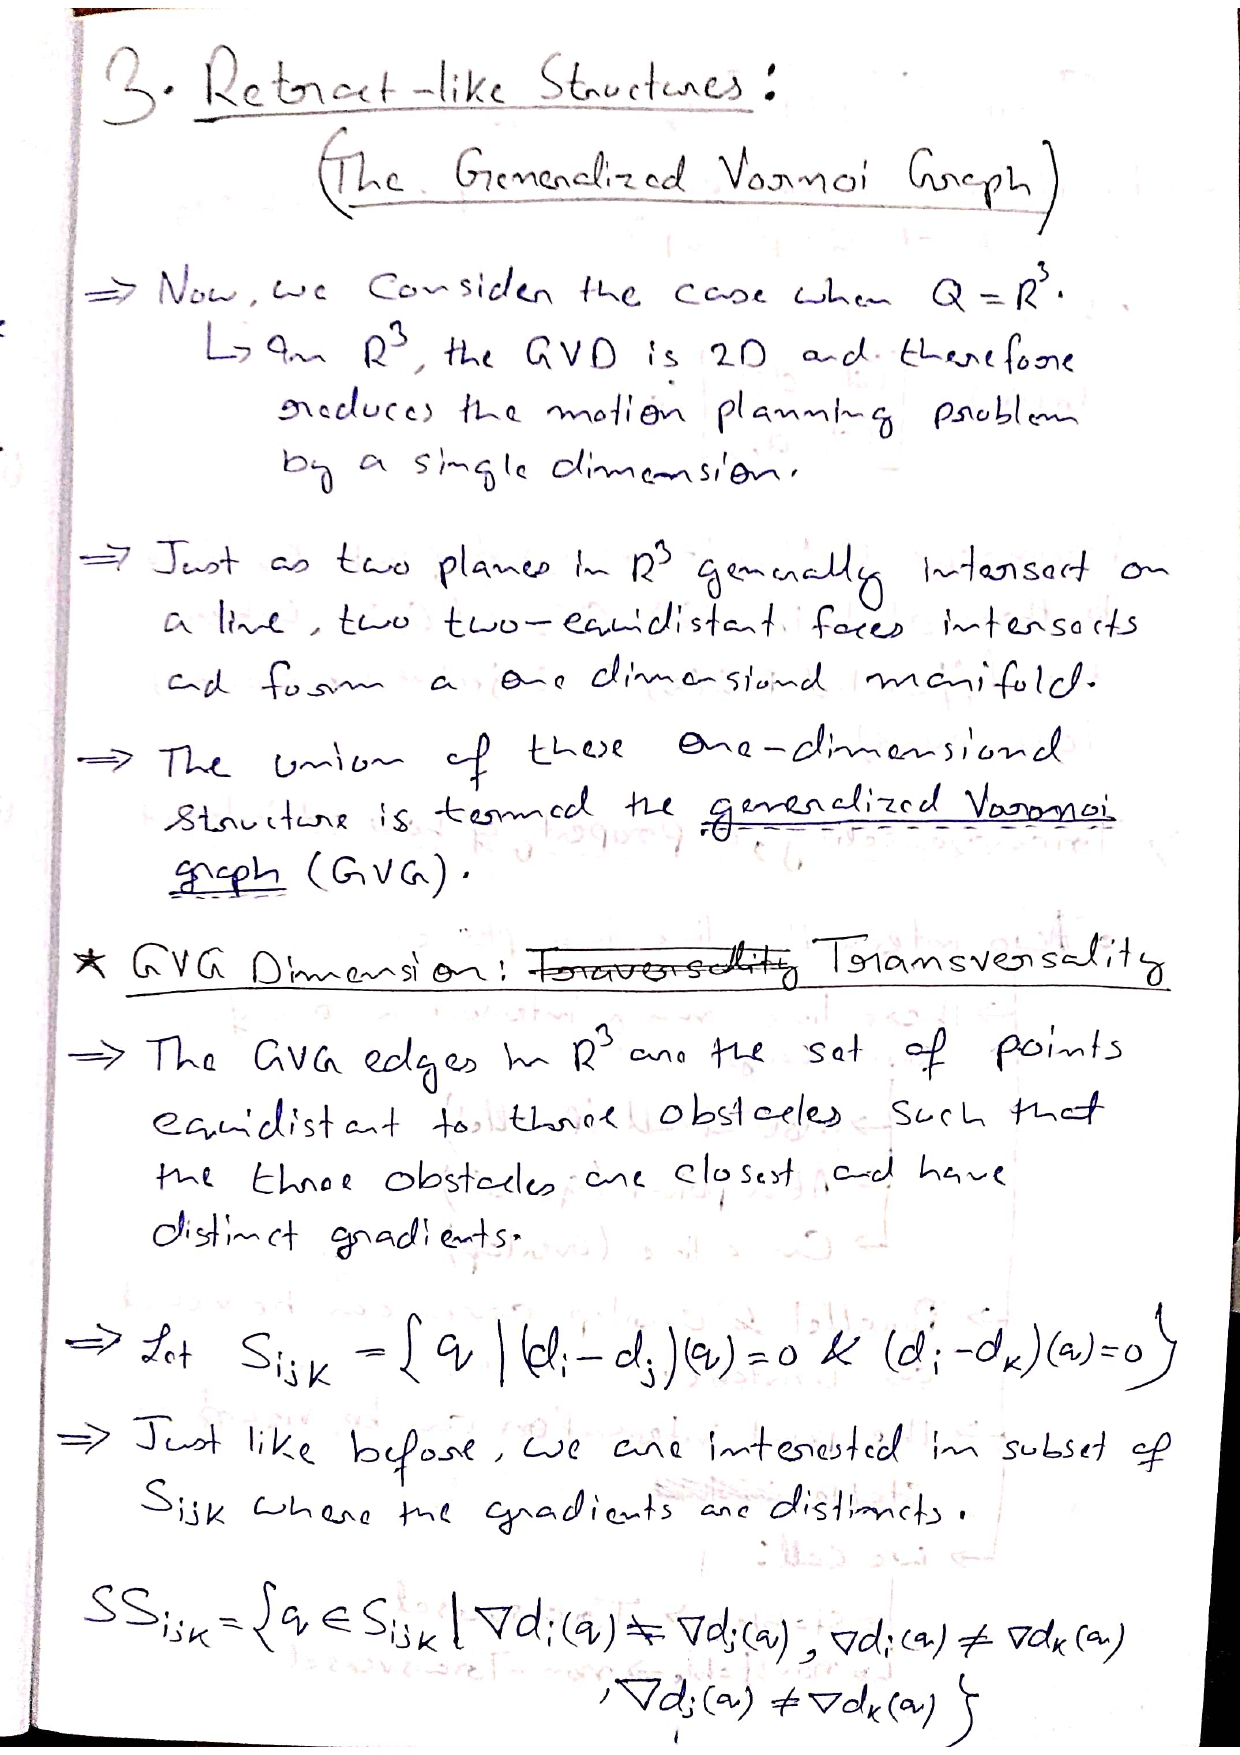 3. Retract-like Structures:
(The Generalized Voronoi Graph)
⇒ Now, we Consider the case when Q = R³.
↳ In R³, the GVD is 2D and therefore
reduces the motion planning problem
by a single dimension.
⇒ Just as two planes in R³ generally intersect on
a line, two two-equidistant faces intersects
and form a one dimensional manifold.
⇒ The union of these one-dimensional
structure is termed the generalized Voronoi
graph (GVG).
* GVG Dimension: ~~Traversality~~ Transversality
⇒ The GVG edges in R³ are the set of points
equidistant to three obstacles such that
the three obstacles are closest and have
distinct gradients.
⇒ Let Sijk = {q | (di - dj)(q) = 0 & (di - dk)(q) = 0}
⇒ Just like before, we are interested in subset of
Sijk where the gradients are distincts.
SSijk = {q ∈ Sijk | ∇di(q) ≠ ∇dj(q), ∇di(q) ≠ ∇dk(q)
, ∇dj(q) ≠ ∇dk(q)}